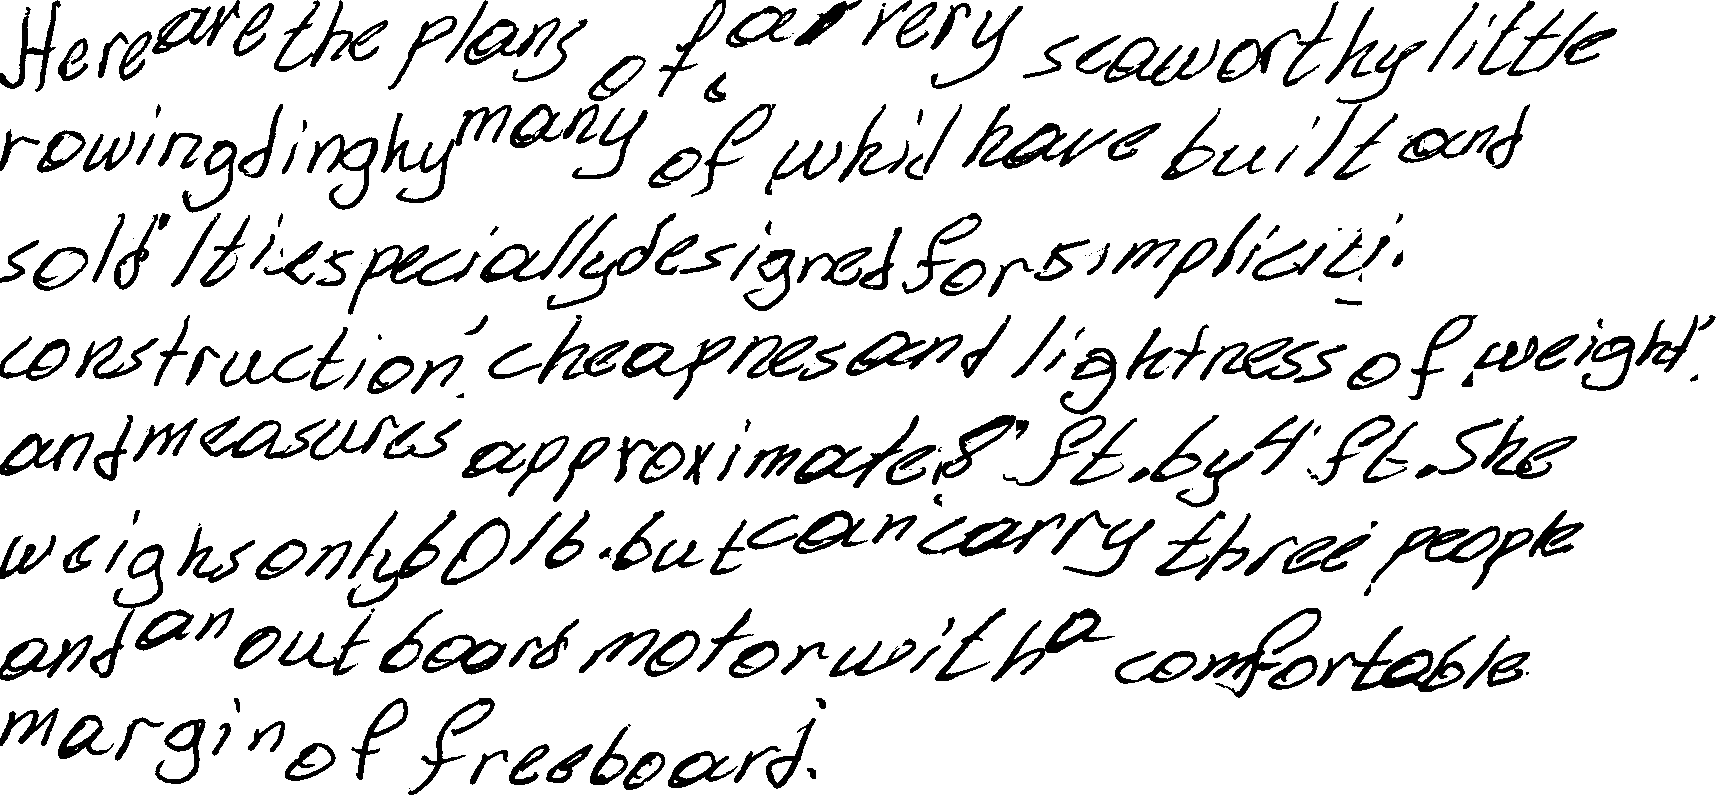 Here are the plans of a very seaworthy little
rowing dinghy many of which have built and
sold" It is especially designed for simplicity.
construction, cheapness and lightness of weight.
and measures approximate 8" ft. by 4' ft. She
weighs only 60 lb. but can carry three people
and an outboard motor with a comfortable
margin of freeboard.